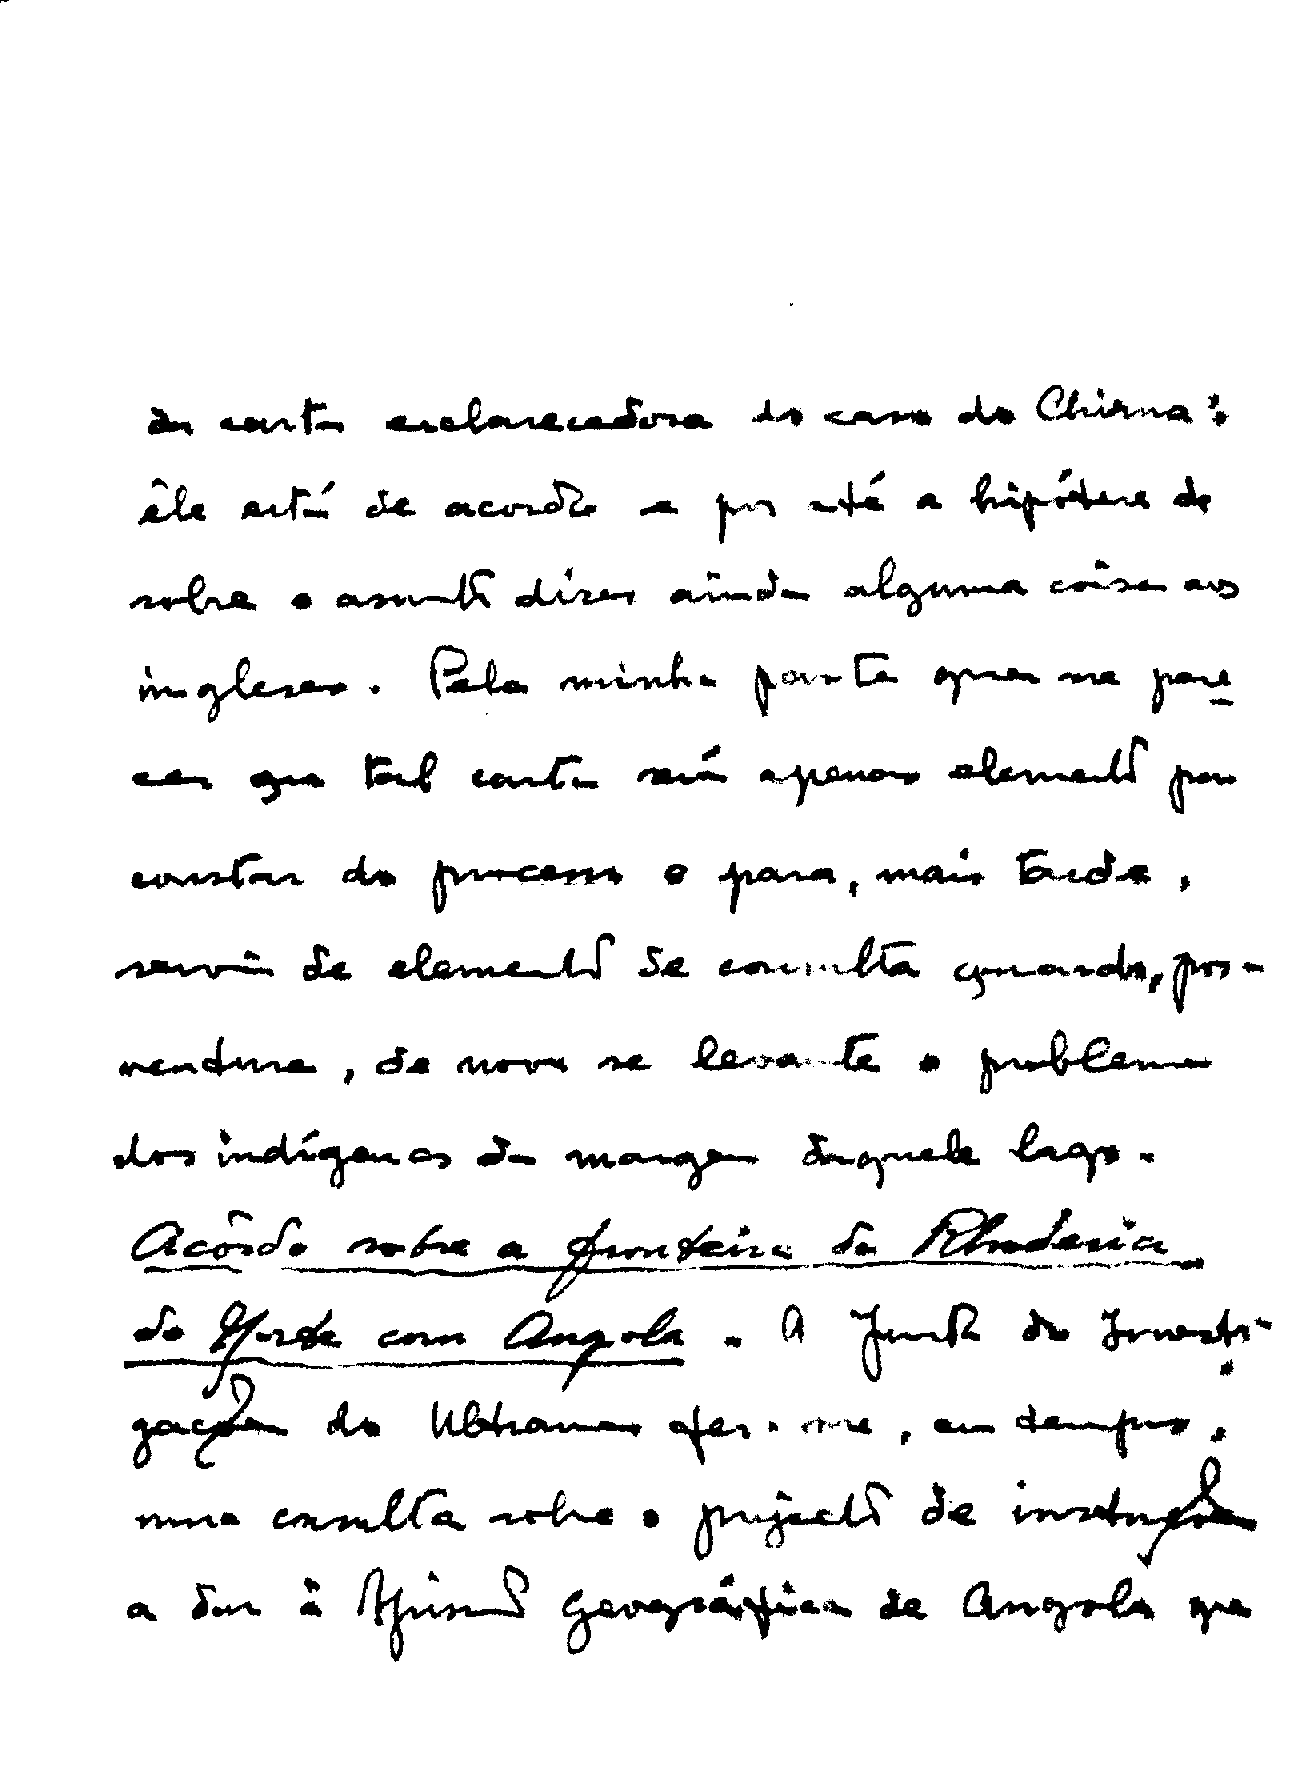 da carta esclarecedora do caso do Chirua:
êle está de acordo e põe até a hipótese de
sobre o assunto dizer ainda alguma coisa aos
ingleses. Pela minha parte quer me pare
cer que tal carta será apenas elemento para
constar do processo e para, mais tarde,
servir de elemento de consulta quando, por-
ventura, de novo se levante o problema
dos indígenas da margem daquele lago.
Acôrdo sobre a fronteira da Rhodesia
do Norte com Angola. A Junta de Investi-
gações do Ultramar fez-me, em tempos,
uma consulta sobre o projecto de instruções
a dar à Missão Geográfica de Angola que